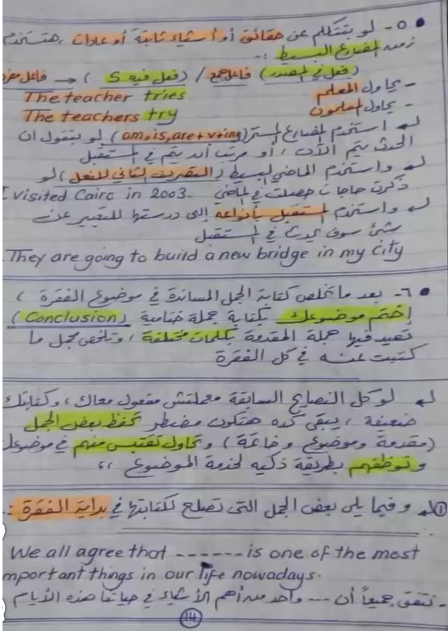 ٥- لو بتتكلم عن حقائق أو أشياء ثابتة أو عادات، هتستخدم
زمن المضارع البسيط :-
(فعل في المصدر) فاعل جمع / (فعل فيه S) ← فاعل مفرد
The teacher tries - يحاول المعلم
The teachers try - يحاول المعلمون
واستخدم المضارع المستمر (am,is,are+v+ing) لو بتقول ان
الحدث يتم الآن، أو مرتب أنه يتم في المستقبل
واستخدم الماضي البسيط (التصريف الثاني للفعل) لو
ذكرت حاجات حصلت في الماضي I visited Cairo in 2003.
واستخدم المستقبل بأنواعه إلى درستها للتعبير عن
شئ سوف يحدث في المستقبل
They are going to build a new bridge in my city
٦- بعد ما تخلص كتابة الجمل المساندة في موضوع الفقرة،
إختم موضوعك بكتابة جملة ختامية (Conclusion)
تعيد فيها جملة المقدمة بكلمات مختلفة، وتلخص مجمل ما
كتبت عنه في كل الفقرة
لو كل النصايح السابقة معملتش مفعول معاك، وكتابتك
ضعيفة، يبقى كده هتكون مضطر تحفظ بعض الجمل
(مقدمة وموضوع وخاتمة) وتحاول تقتبس منهم في موضوعك
وتوظفهم بطريقة ذكيه لخدمة الموضوع ،،
① وفيما يلى بعض الجمل التى تصلح لكتابتها في بداية الفقرة :-
We all agree that ------ is one of the most
mportant things in our life nowadays.
- نتفق جميعاً أن --- واحد من أهم الأشياء في حياتنا هذه الأيام
١٤